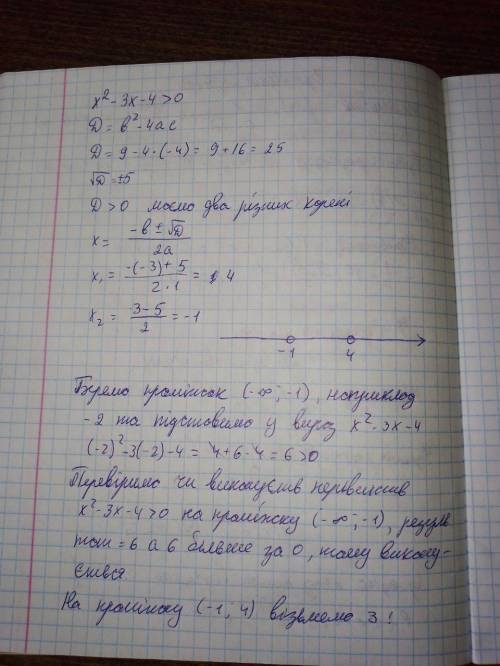 x² - 3x - 4 > 0
D = b² - 4ac
D = 9 - 4·(-4) = 9 + 16 = 25
√D = ±5
D > 0 маємо два різних корені
x = (-b ± √D) / 2a
x₁ = (-(-3) + 5) / (2·1) = 4
x₂ = (3 - 5) / 2 = -1
-1 4
Беремо проміжок (-∞; -1), наприклад
-2 та підставимо у вираз x² - 3x - 4
(-2)² - 3(-2) - 4 = 4 + 6 - 4 = 6 > 0
Перевіримо чи виконується нерівність
x² - 3x - 4 > 0 на проміжку (-∞; -1), резуль
тат = 6 а 6 більше за 0, тому викону-
ється
На проміжку (-1; 4) візьмемо 3!